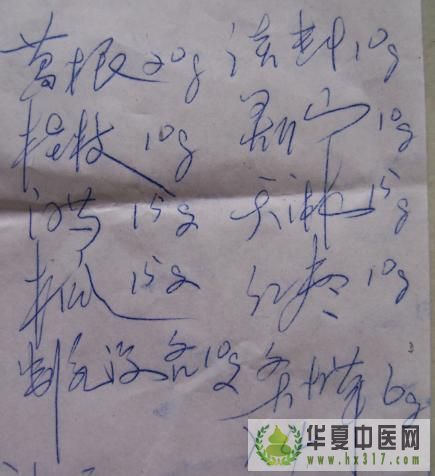 葛根20g 10g
桂枝 10g 10g
白芍 15g 天麻 15g
木瓜 15g 红枣 10g
制乳没各10g 甘草 6g
华夏中医网
www.hx317.com